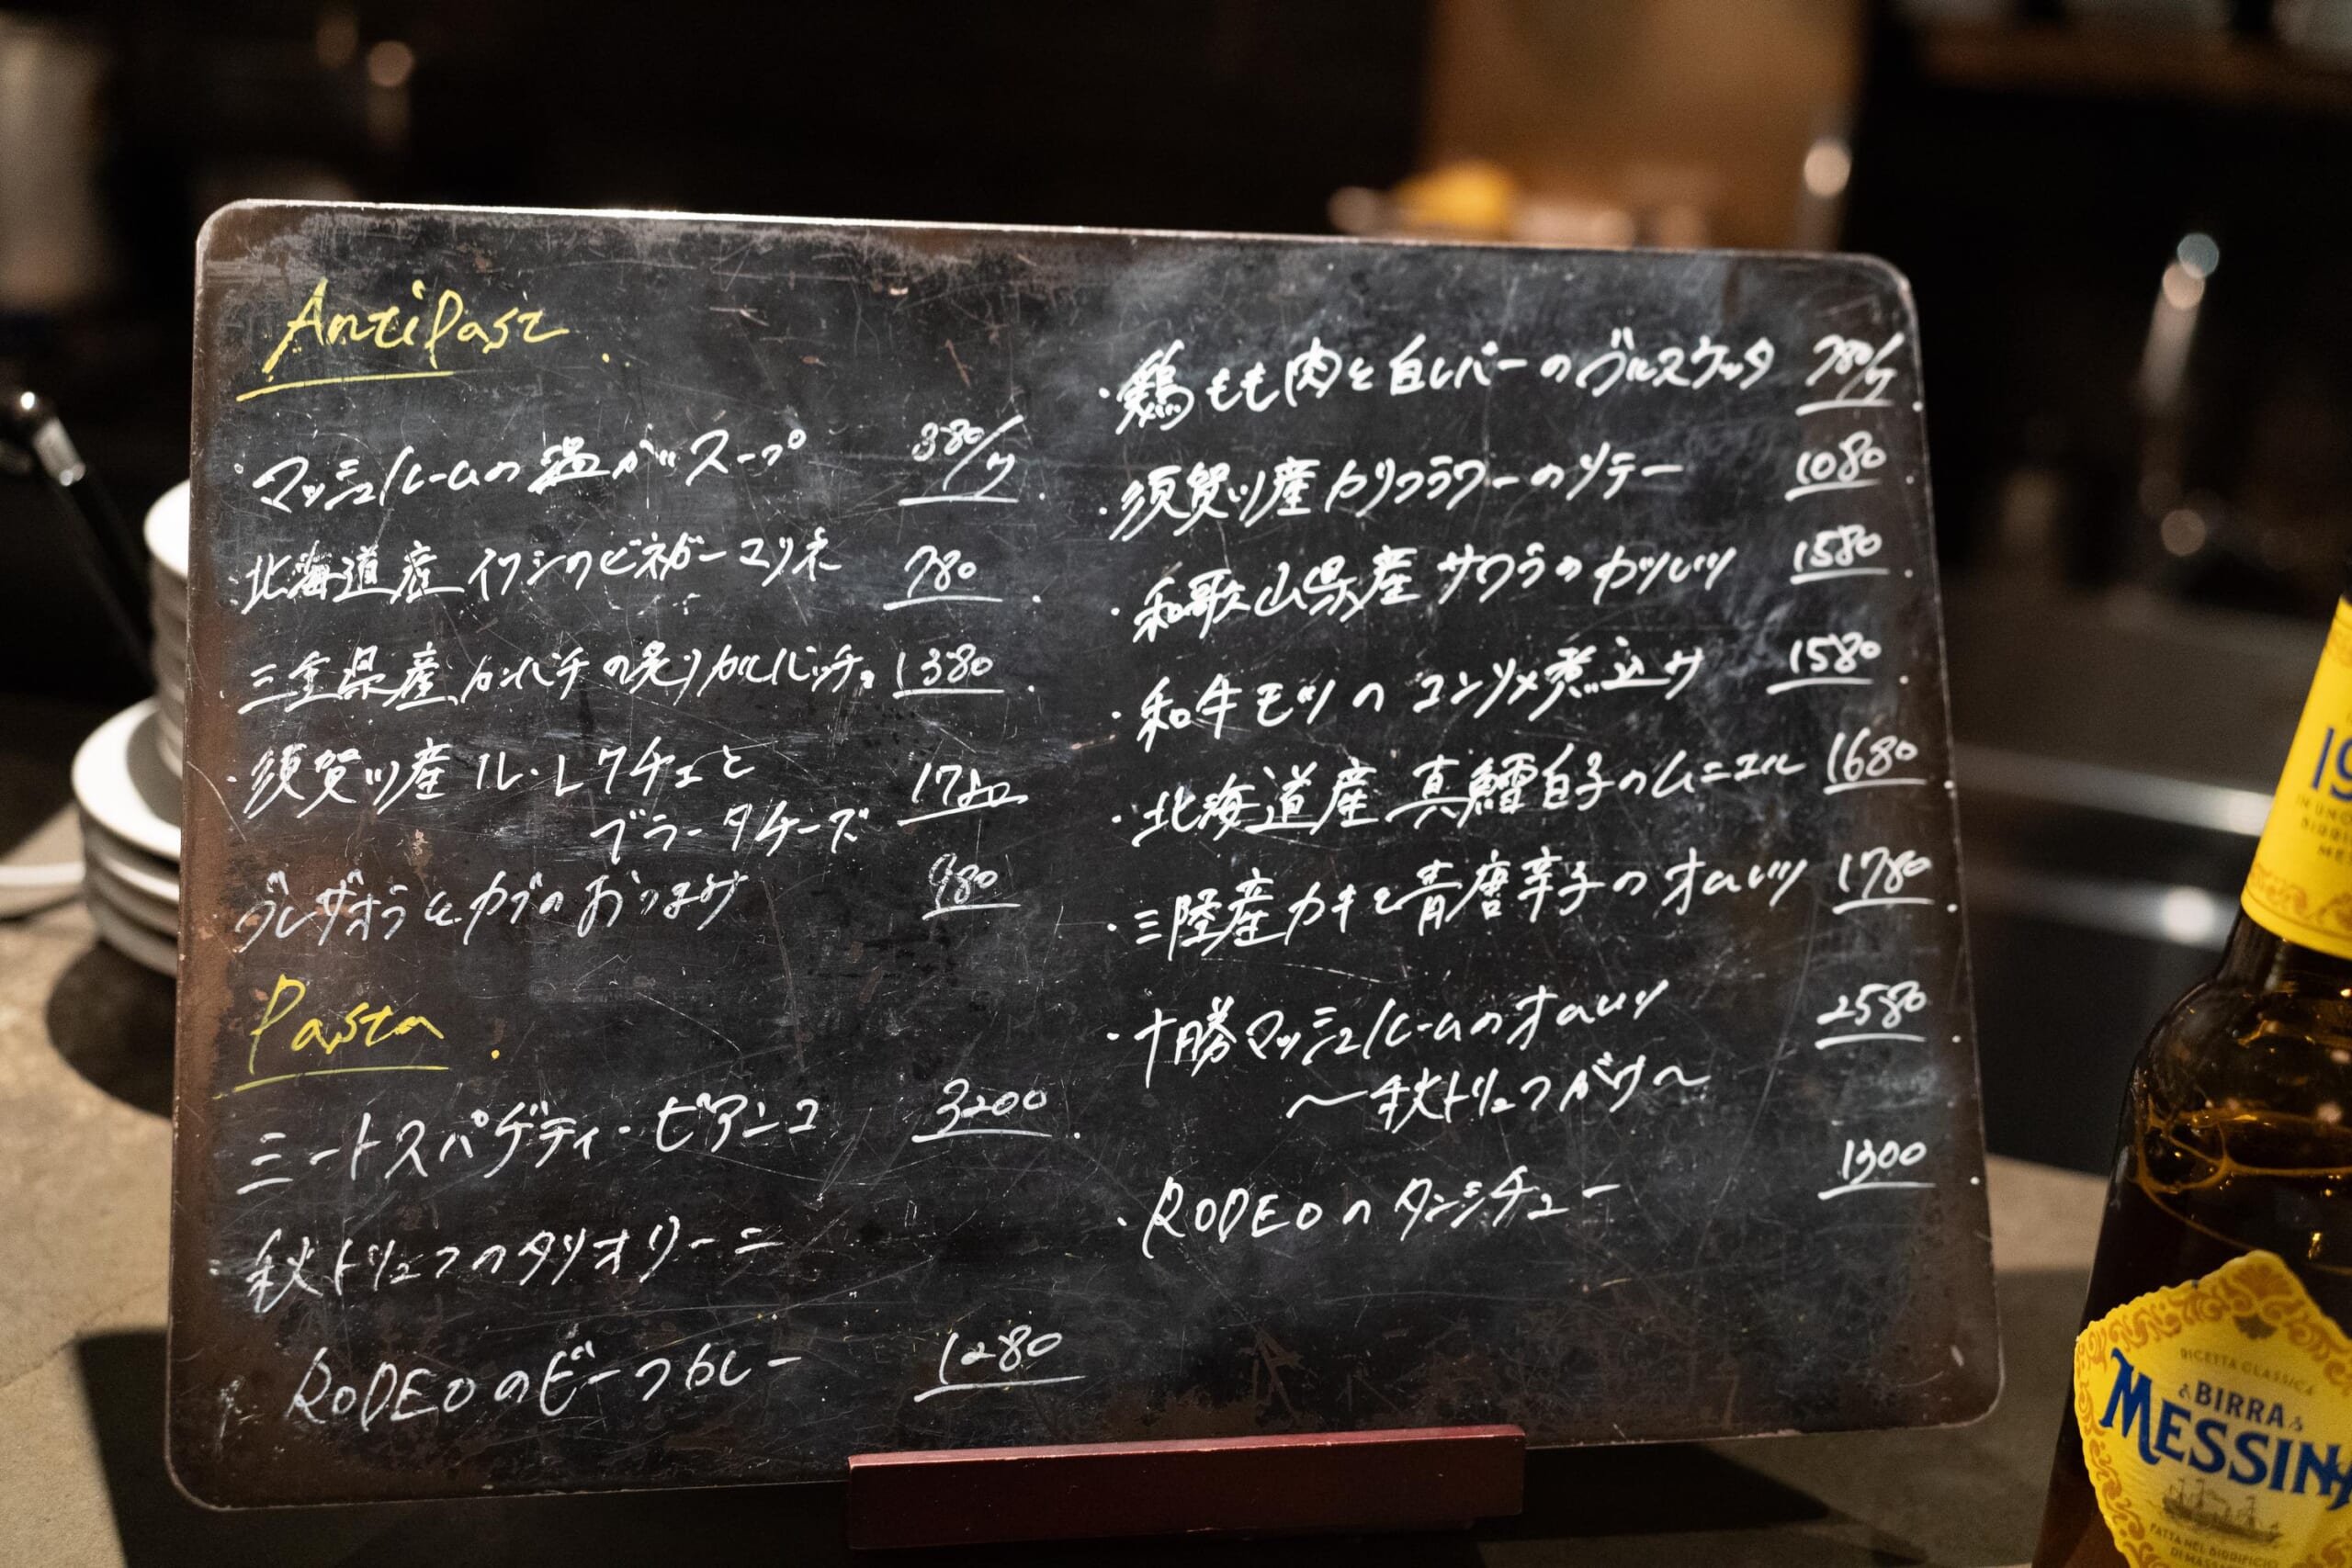 Antipast.
・マッシュルームの温かいスープ 380/ケ
・北海道産イワシのビネガーマリネ 780
・三重県産カンパチの炙りカルパッチョ 1380
・須賀川産 ル・レクチェと 1780
ブラータチーズ
ブレザオラとカブのおつまみ 980
Pasta.
ミートスパゲティ・ビアンコ 3200
秋トリュフのタリオリーニ
RODEOのビーフカレー 1280
・鶏もも肉と白レバーのブルスケッタ 780/ケ
・須賀川産カリフラワーのソテー 1080
・和歌山県産サワラのカツレツ 1580
・和牛モツのコンソメ煮込み 1580
・北海道産真鱈白子のムニエル 1680
・三陸産カキと青唐辛子のオムレツ 1780
・十勝マッシュルームのオムレツ 2580
〜秋トリュフがけ〜
・RODEOのタンシチュー 1300
19
RICETTA CLASSICA
BIRRA
MESSINA